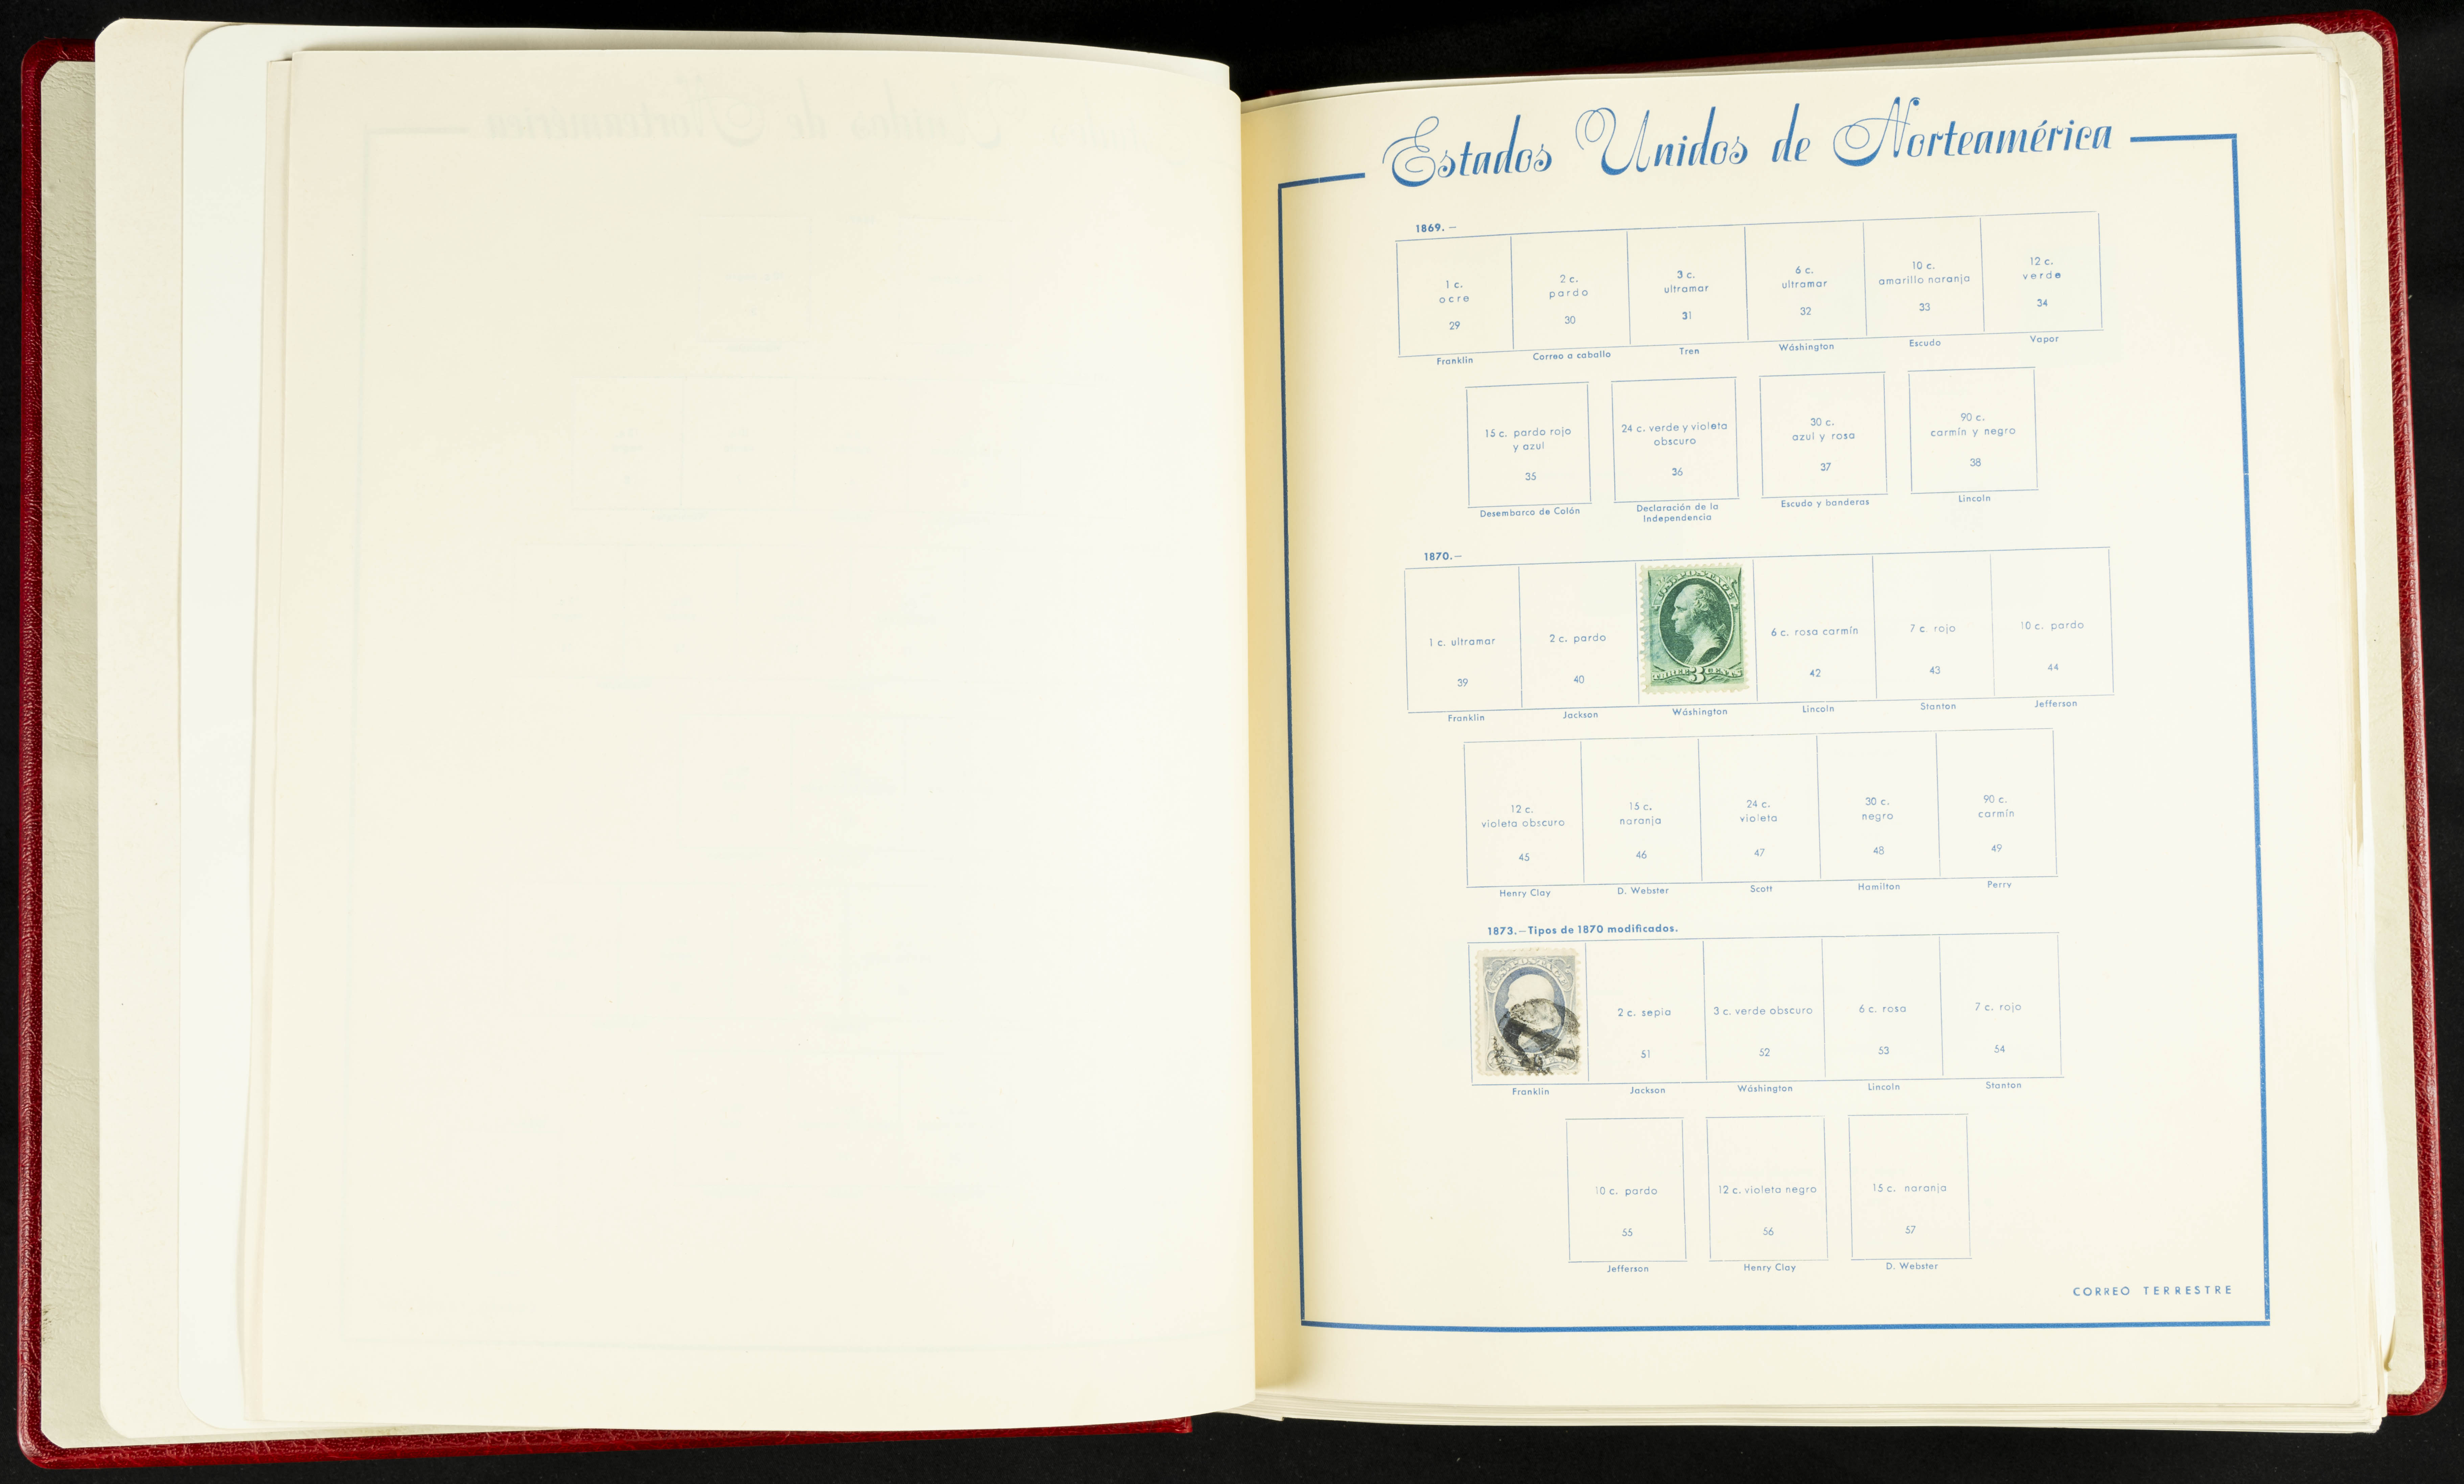 Estados Unidos de Norteamérica
1869. —
1 c.
ocre
29
Franklin
2 c.
pardo
30
Correo a caballo
3 c.
ultramar
31
Tren
6 c.
ultramar
32
Wáshington
10 c.
amarillo naranja
33
Escudo
12 c.
verde
34
Vapor
15 c. pardo rojo
y azul
35
Desembarco de Colón
24 c. verde y violeta
obscuro
36
Declaración de la
Independencia
30 c.
azul y rosa
37
Escudo y banderas
90 c.
carmín y negro
38
Lincoln
1870.—
1 c. ultramar
39
Franklin
2 c. pardo
40
Jackson
U.S. POSTAGE
THREE 3 CENTS
Wáshington
6 c. rosa carmín
42
Lincoln
7 c. rojo
43
Stanton
10 c. pardo
44
Jefferson
12 c.
violeta obscuro
45
Henry Clay
15 c.
naranja
46
D. Webster
24 c.
violeta
47
Scott
30 c.
negro
48
Hamilton
90 c.
carmín
49
Perry
1873.—Tipos de 1870 modificados.
U.S. POSTAGE
Franklin
2 c. sepia
51
Jackson
3 c. verde obscuro
52
Wáshington
6 c. rosa
53
Lincoln
7 c. rojo
54
Stanton
10 c. pardo
55
Jefferson
12 c. violeta negro
56
Henry Clay
15 c. naranja
57
D. Webster
CORREO TERRESTRE